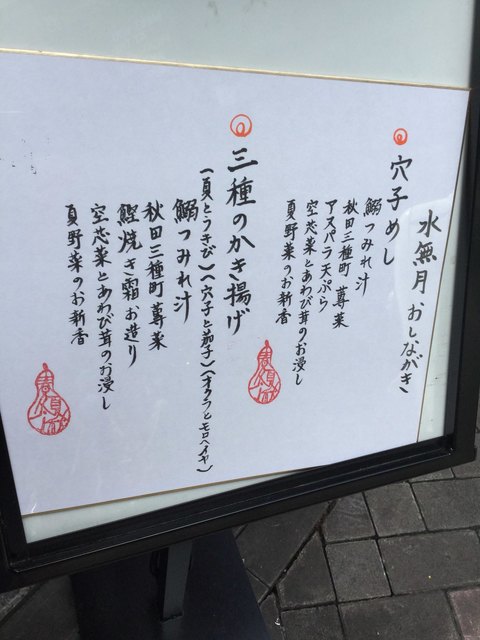 水無月 おしながき
穴子めし
鰯つみれ汁
秋田三種町 蓴菜
アスパラ天ぷら
空芯菜とあわび茸のお浸し
夏野菜のお新香
三種のかき揚げ
(貝とうきび)(穴子と茄子)(オクラとモロヘイヤ)
鰯つみれ汁
秋田三種町 蓴菜
鰹焼き霜お造り
空芯菜とあわび茸のお浸し
夏野菜のお新香